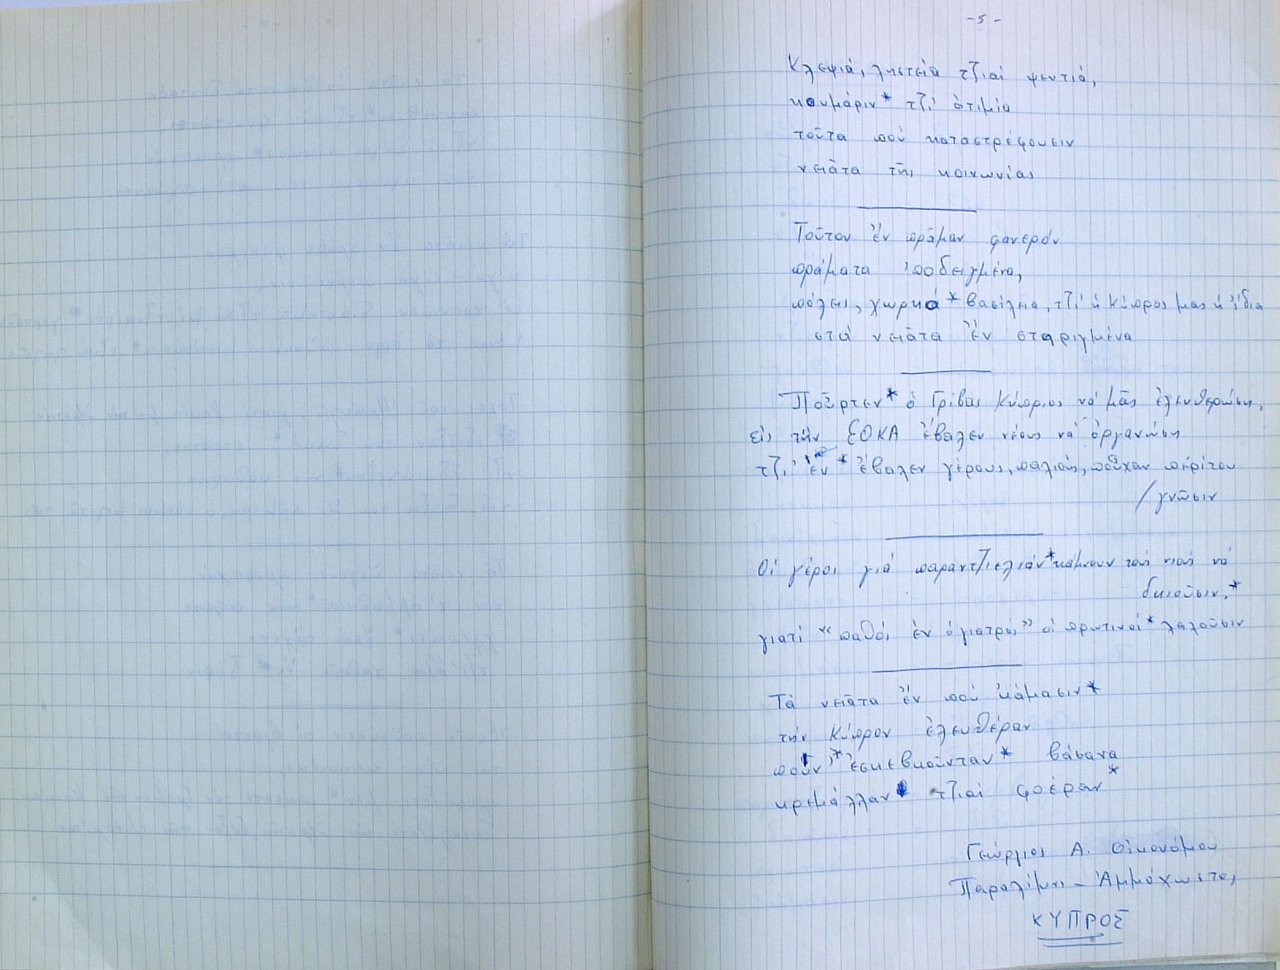 -5-
Κλεψιά, ληστεία τζιαί ψευτιά,
κουμάριν* τζ̌ι' ἀτιμία
τοῦτα πού καταστρέφουσιν
νειᾶτα τῆς κοινωνίας
Τοῦτον ἔν πρᾶμαν φανερόν
πράματα 'ποδειγμένα,
πόλεις, χωρκά* βασίλεια, τζ̌ι' ἡ Κύπρος μας ἡ ἴδια
στά νειᾶτα ἔν στηριγμένα
Ποὖρτεν* ὁ Γρίβας Κύπριος νά μᾶς ἐλευθερώση,
εἰς τήν ΕΟΚΑ ἔβαλεν νέους νά ὀργανώση
τζ̌ι' ἐν* ἔβαλεν γέρους, παλιούς, ποὖχαν πήρίτου
/γνῶσιν
Οἱ γέροι γιά παραντζ̌ιελιάν* κάμνουν τούς νιούς νά
δκιοῦσιν.*
γιατί "παθός ἔν ὁ γιατρός" οἱ πρωτινοί* λαλοῦσιν
Τά νειᾶτα ἔν πού 'κάμασιν*
τήν Κύπρον ἐλευθέραν
πού 'ν* ἐσκεβκοῦνταν* βάσανα
κρεμάλλαν* τζιαί φοέραν*
Γεώργιος Α. Οἰκονόμου
Παραλίμνι - Ἀμμόχωστος
ΚΥΠΡΟΣ